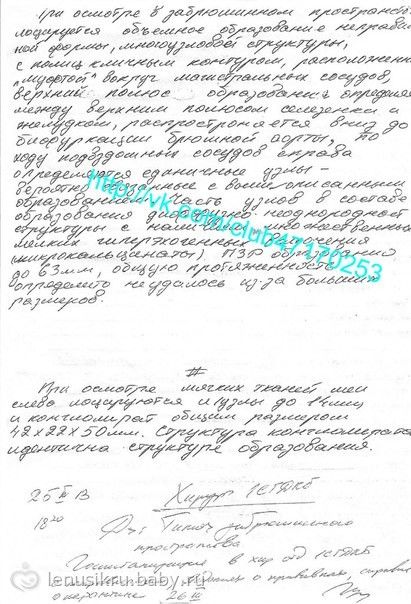 При осмотре в забрюшинном пространстве
лоцируется объемное образование неправиль
ной формы, многоузловой структуры,
с полициклическим контуром, расположенное
"муфтой" вокруг магистральных сосудов,
верхний полюс образования определяе
между верхним полюсом селезенки и
желудком, распространяется вниз до
бифуркации брюшной аорты, по
ходу подвздошных сосудов справа
определяются единичные узлы -
вероятно связанные с вышеописанным
образованием. Часть узлов в составе
образования неоднородной
структуры с множественных
мелких гиперэхогенных включения
(микрокальцинаты). ПЗР образования
до 63мм, общую протяженность
определить не удалось из-за больших
размеров.
http://vk.com/club47170253
#
При осмотре мягких тканей шеи
слева лоцируются л/узлы до 14мм
и конгломерат общим размером
42х22х50мм. Структура конгломерата
идентична структуре образования.
25 III 13 Хирург
18 20
Ds: забрюшинного
пространства
Госпитализация в хир
о карантине 26 III
lenusikru.baby.ru